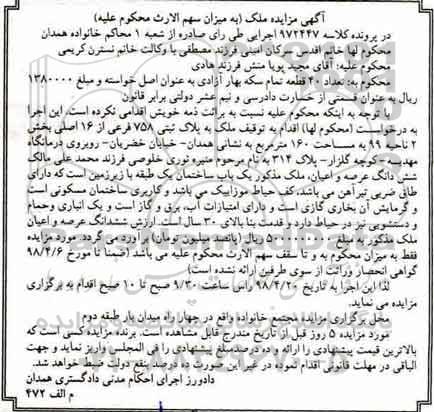 آگهی مزایده ملک (به میزان سهم الارث محکوم علیه)
در پرونده کلاسه ۹۷۲۴۴۷ اجرایی طی رای صادره از شعبه ۱ محاکم خانواده همدان
محکوم لها خانم اقدس سرکان امینی فرزند مصطفی با وکالت خانم نسترن کریمی
محکوم علیه: آقای مجید پویا منش فرزند هادی
محکوم به: تعداد ۴۰ قطعه تمام سکه بهار آزادی به عنوان اصل خواسته و مبلغ ۱۳۸۰۰۰۰
ریال به عنوان قسمتی از خسارت دادرسی و نیم عشر دولتی برابر قانون
با توجه به اینکه محکوم علیه نسبت به برائت ذمه خویش اقدامی نکرده است. این اجرا
به درخواست (محکوم لها) اقدام به توقیف ملک به پلاک ثبتی ۷۵۸ فرعی از ۱۶ اصلی بخش
۲ ناحیه ۹۹ به مساحت ۱۶۰ مترمربع به نشانی همدان- خیابان خضریان- روبروی درمانگاه
مهدیه- کوچه گلزار- پلاک ۳۱۴ به نام مرحوم منیره نوری خلوصی فرزند محمد علی مالک
شش دانگ عرصه و اعیان، ملک مذکور یک باب ساختمان یک طبقه با زیرزمین است که دارای
طاق ضربی تیر آهن می باشد، کف حیاط موزاییک می باشد و کاربری ساختمان مسکونی است
و گرمایش آن بخاری گازی است و دارای امتیازات آب، برق و گاز است و یک انباری و حمام
و دستشویی نیز در حیاط دارد و قدمت بنا بالای ۳۰ سال است. ارزش ششدانگ عرصه و اعیان
ملک مذکور به مبلغ ۵/۰۰۰/۰۰۰/۰۰۰ ریال (پانصد میلیون تومان) برآورد می گردد. مورد مزایده
فقط به میزان محکوم به و تا سقف سهم الارث محکوم علیه می باشد (ضمنا تا مورخ ۹۸/۴/۶
گواهی انحصار وراثت از سوی طرفین ارائه نشده است)
لذا این اجرا به تاریخ ۹۸/۴/۲۰ راس ساعت ۹/۳۰ صبح تا ۱۰ صبح اقدام به برگزاری
مزایده می نماید.
محل برگزاری مزایده مجتمع خانواده واقع در چهار راه میدان بار طبقه دوم
مورد مزایده ۵ روز قبل از تاریخ مندرج قابل مشاهده است. برنده مزایده کسی است که
بالاترین قیمت پیشنهادی را ارائه و ده درصد مبلغ پیشنهادی را فی المجلس واریز نماید و جهت
الباقی در مهلت قانونی اقدام نموده در غیر این صورت ده درصد بنفع دولت ضبط خواهد شد.
دادورز اجرای احکام مدنی دادگستری همدان
م الف ۴۷۲